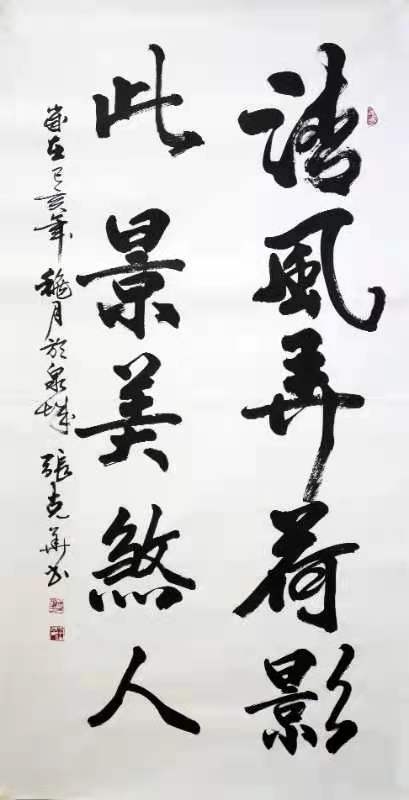 清風弄荷影
此景美煞人
歲在己亥年穐月於泉城張克華書